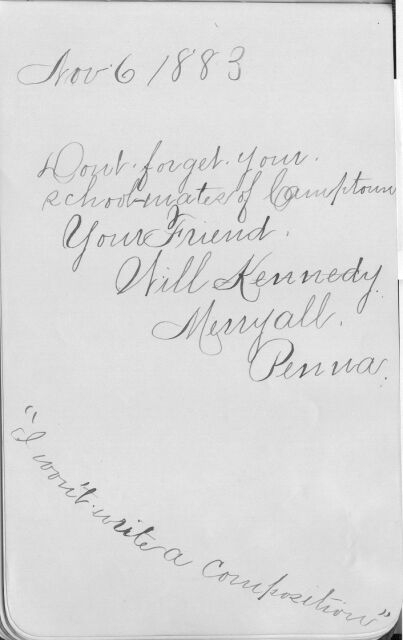 Nov 6 1883
Don't forget your.
schoolmates of Camptown
Your Friend.
Will Kennedy.
Merryall.
Penna.
"I won't write a composition"